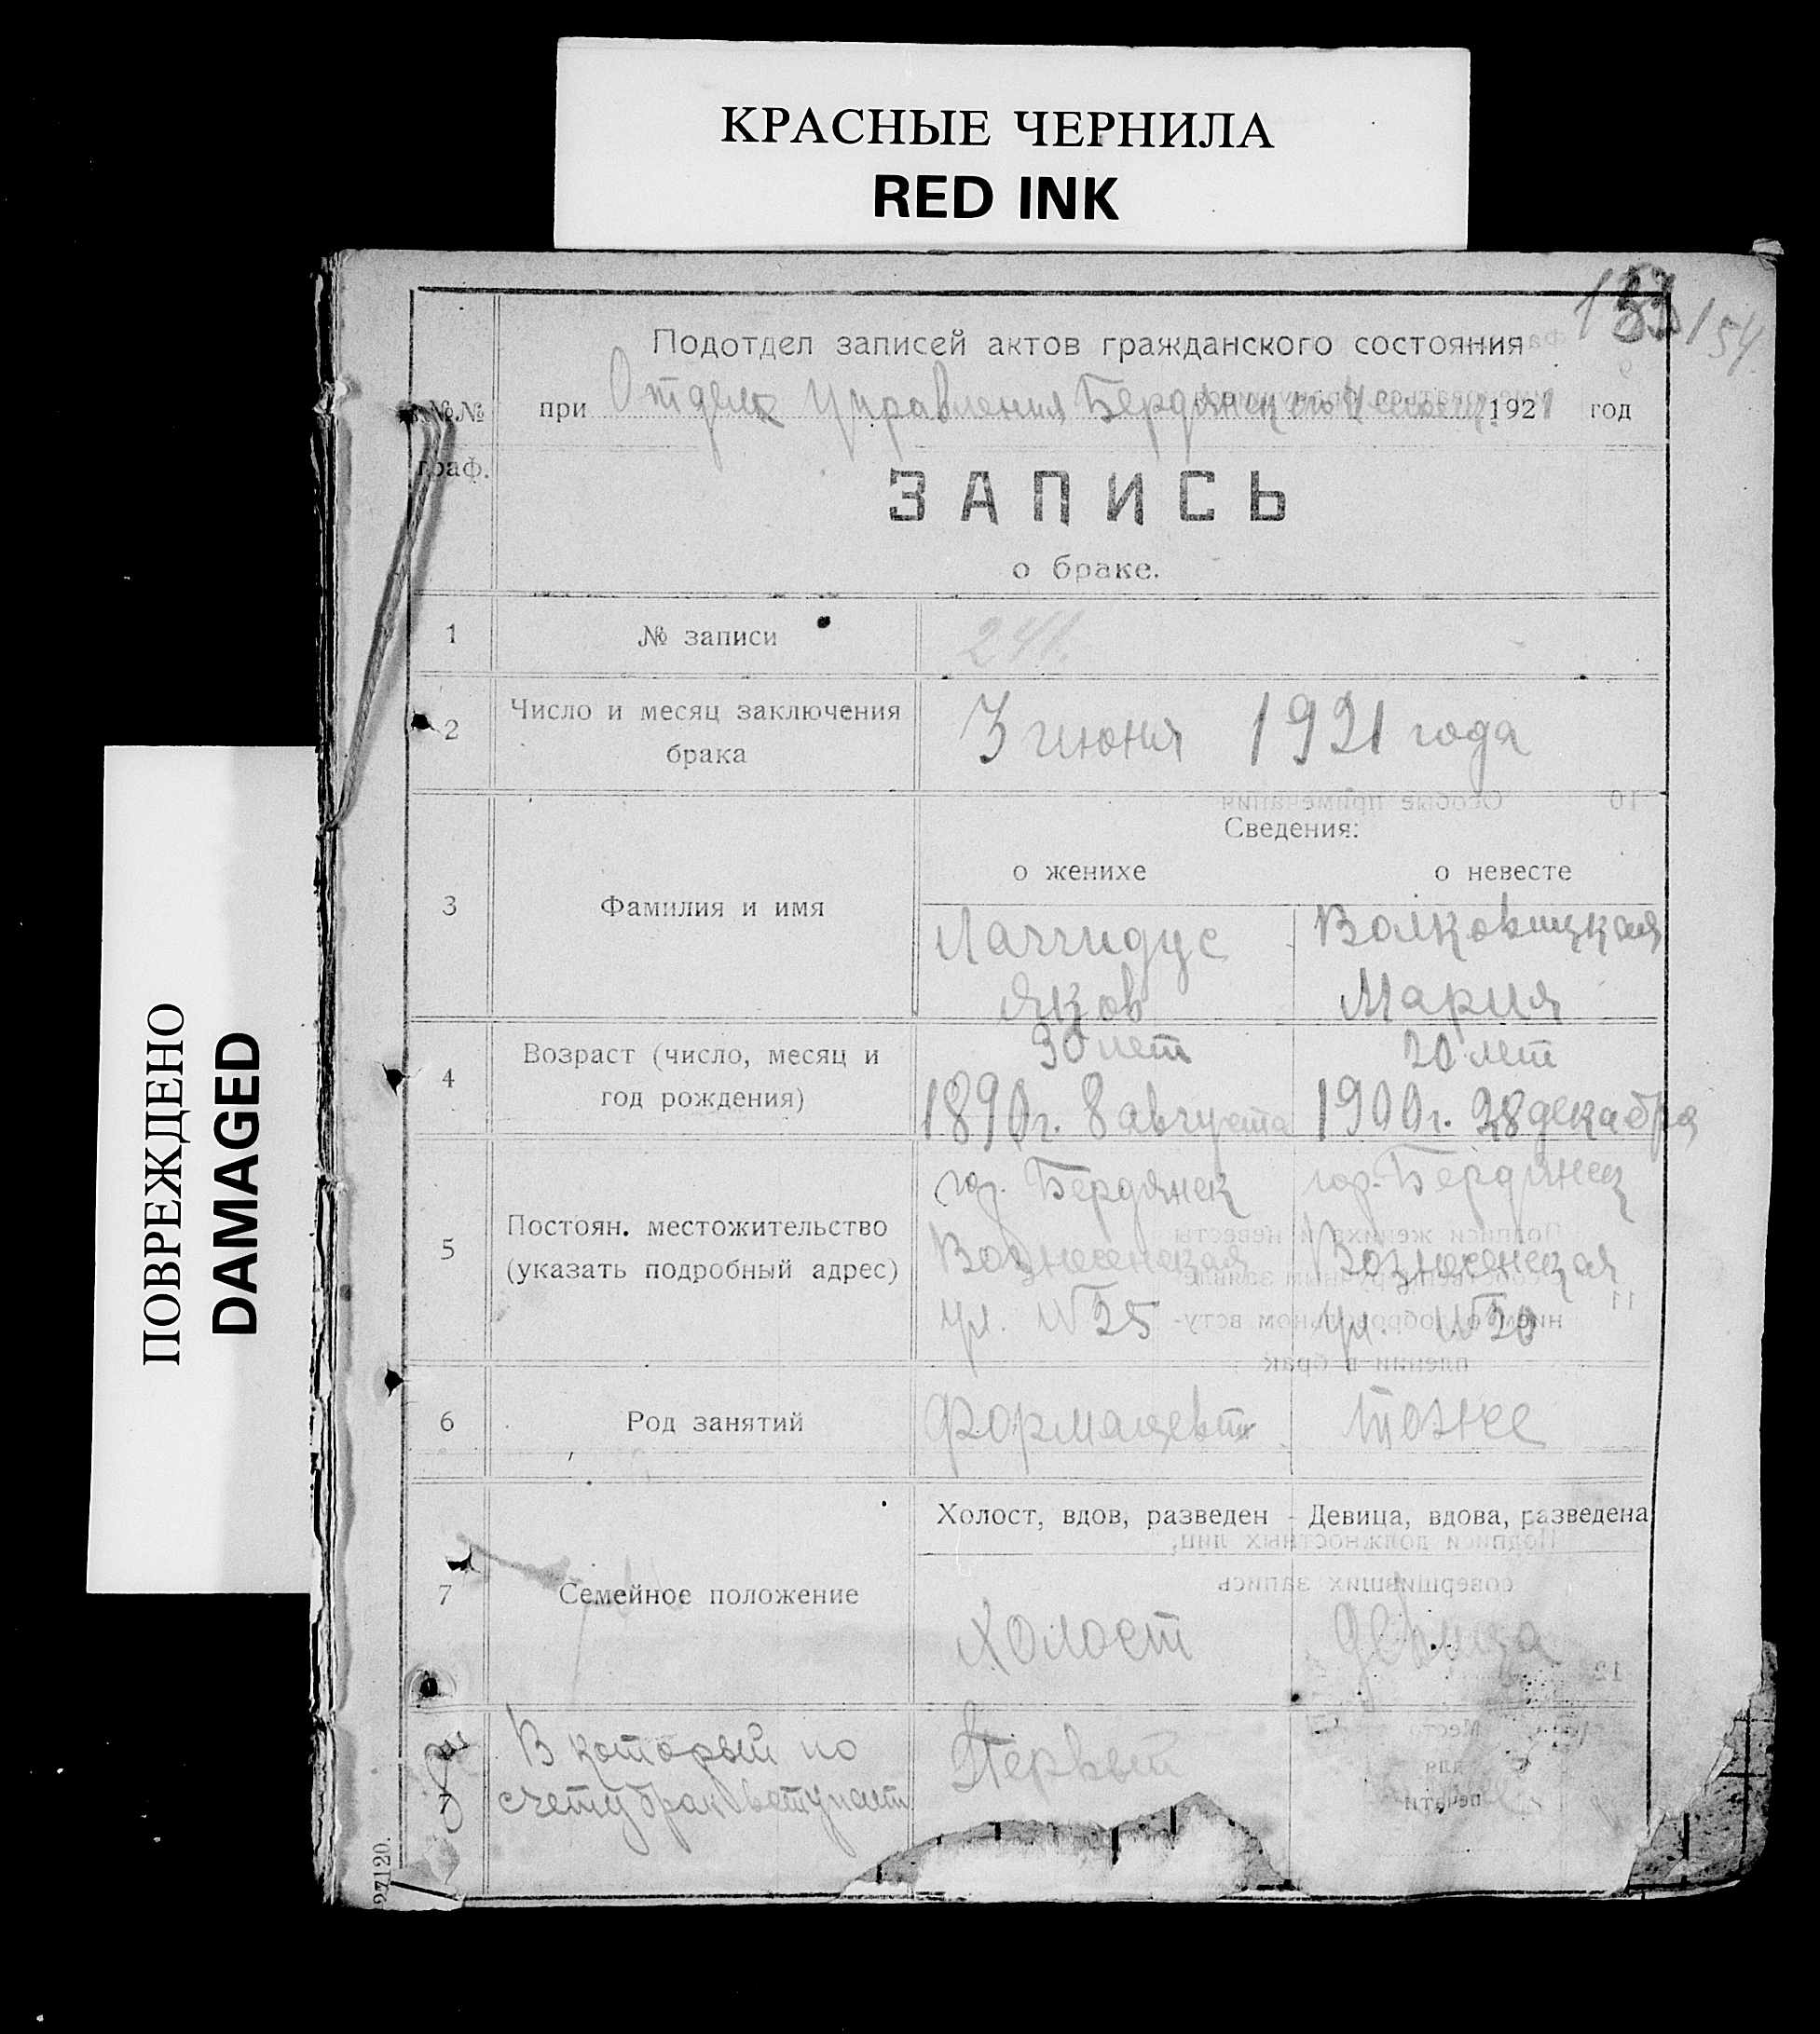 КРАСНЫЕ ЧЕРНИЛА
RED INK
ПОВРЕЖДЕНО
DAMAGED
154
Подотдел записей актов гражданского состояния
№№ граф.
при Отделе Управления Бердянск 1921 год
ЗАПИСЬ
о браке.
1 № записи 241.
2 Число и месяц заключения
брака
3 июня 1921 года
Сведения:
о женихе о невесте
3 Фамилия и имя
Лаггидус Волковицкая
Яков Мария
4 Возраст (число, месяц и
год рождения)
30 лет 20 лет
1890г. 8 августа 1900г. 28 декабря
5 Постоян. местожительство
(указать подробный адрес)
гор. Бердянск гор. Бердянск
Вознесенская Вознесенская
ул. №35 ул. №30
6 Род занятий Формацевт тоже
Холост, вдов, разведен Девица, вдова, разведена
7 Семейное положение
Холост девица
8 В который по
счету брак вступает
Первый
27120.